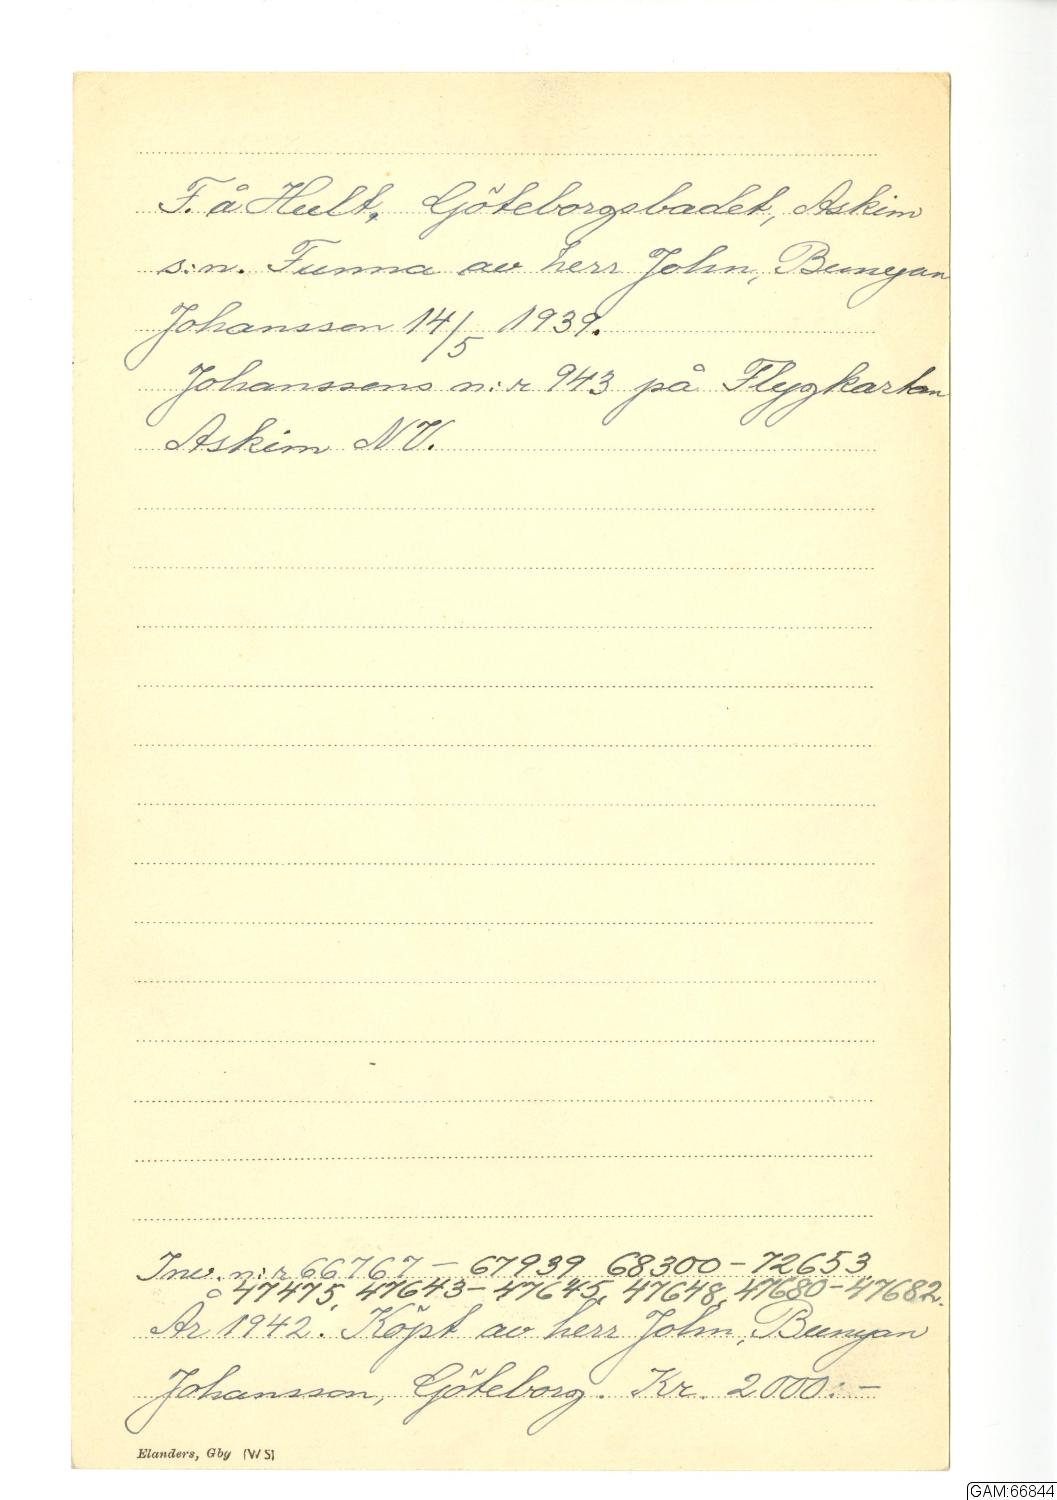 F. å Hult, Göteborgsbadet, Askim
s:n. Funna av herr John, Bunyan
Johansson 14/5 1939.
Johanssons n:r 943 på Flygkartan
Askim NV.
Inv. n:r 66767 – 67939 68300 – 72653
47475, 47643 – 47645, 47648, 47680 – 47682.
År 1942. Köpt av herr John, Bunyan
Johansson, Göteborg. Kr. 2000:–
Elanders, Gby (W S)
GAM:66844